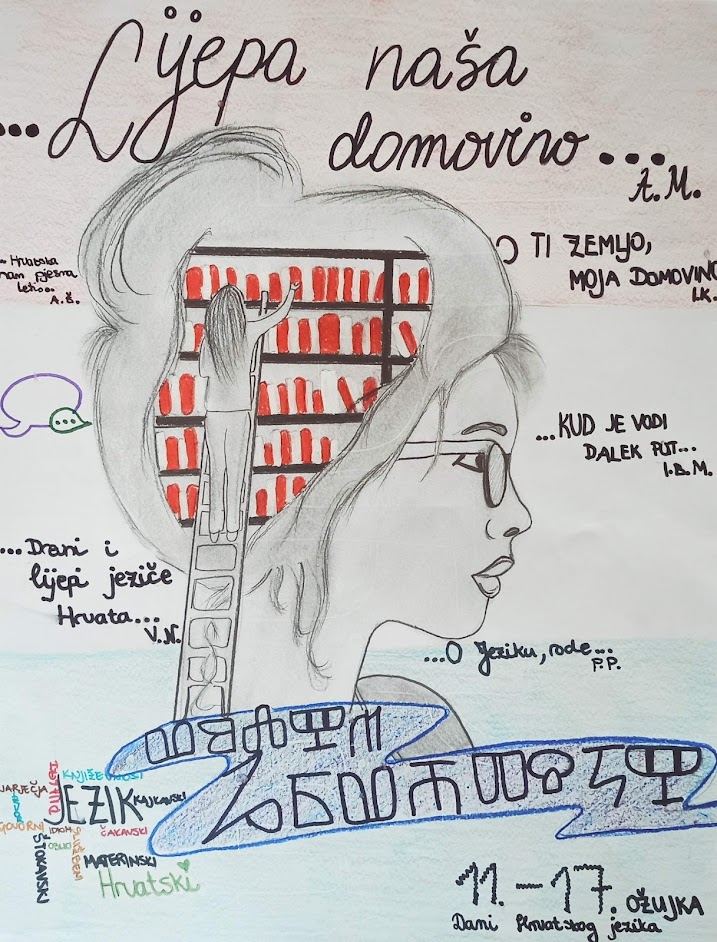 ...Lijepa naša
domovino...
A.M.
O TI ZEMLJO,
MOJA DOMOVINO
I.K.
.. Hrvatska
nam pjesma
leti...
A.Š.
...KUD JE VODI
DALEK PUT...
I.B.M.
...Dani i
lijepi jeziče
Hrvata...
V.N.
...O jeziku, rode...
P.P.
KNJIŽEVNOST
NARJEČJA
JEZIK
KAJKAVSKI
GOVORNI
IDIOM
ČAKAVSKI
ŠTOKAVSKI
SLUŽBENI
MATERINSKI
Hrvatski
11.-17. OŽUJKA
Dani Hrvatskog jezika